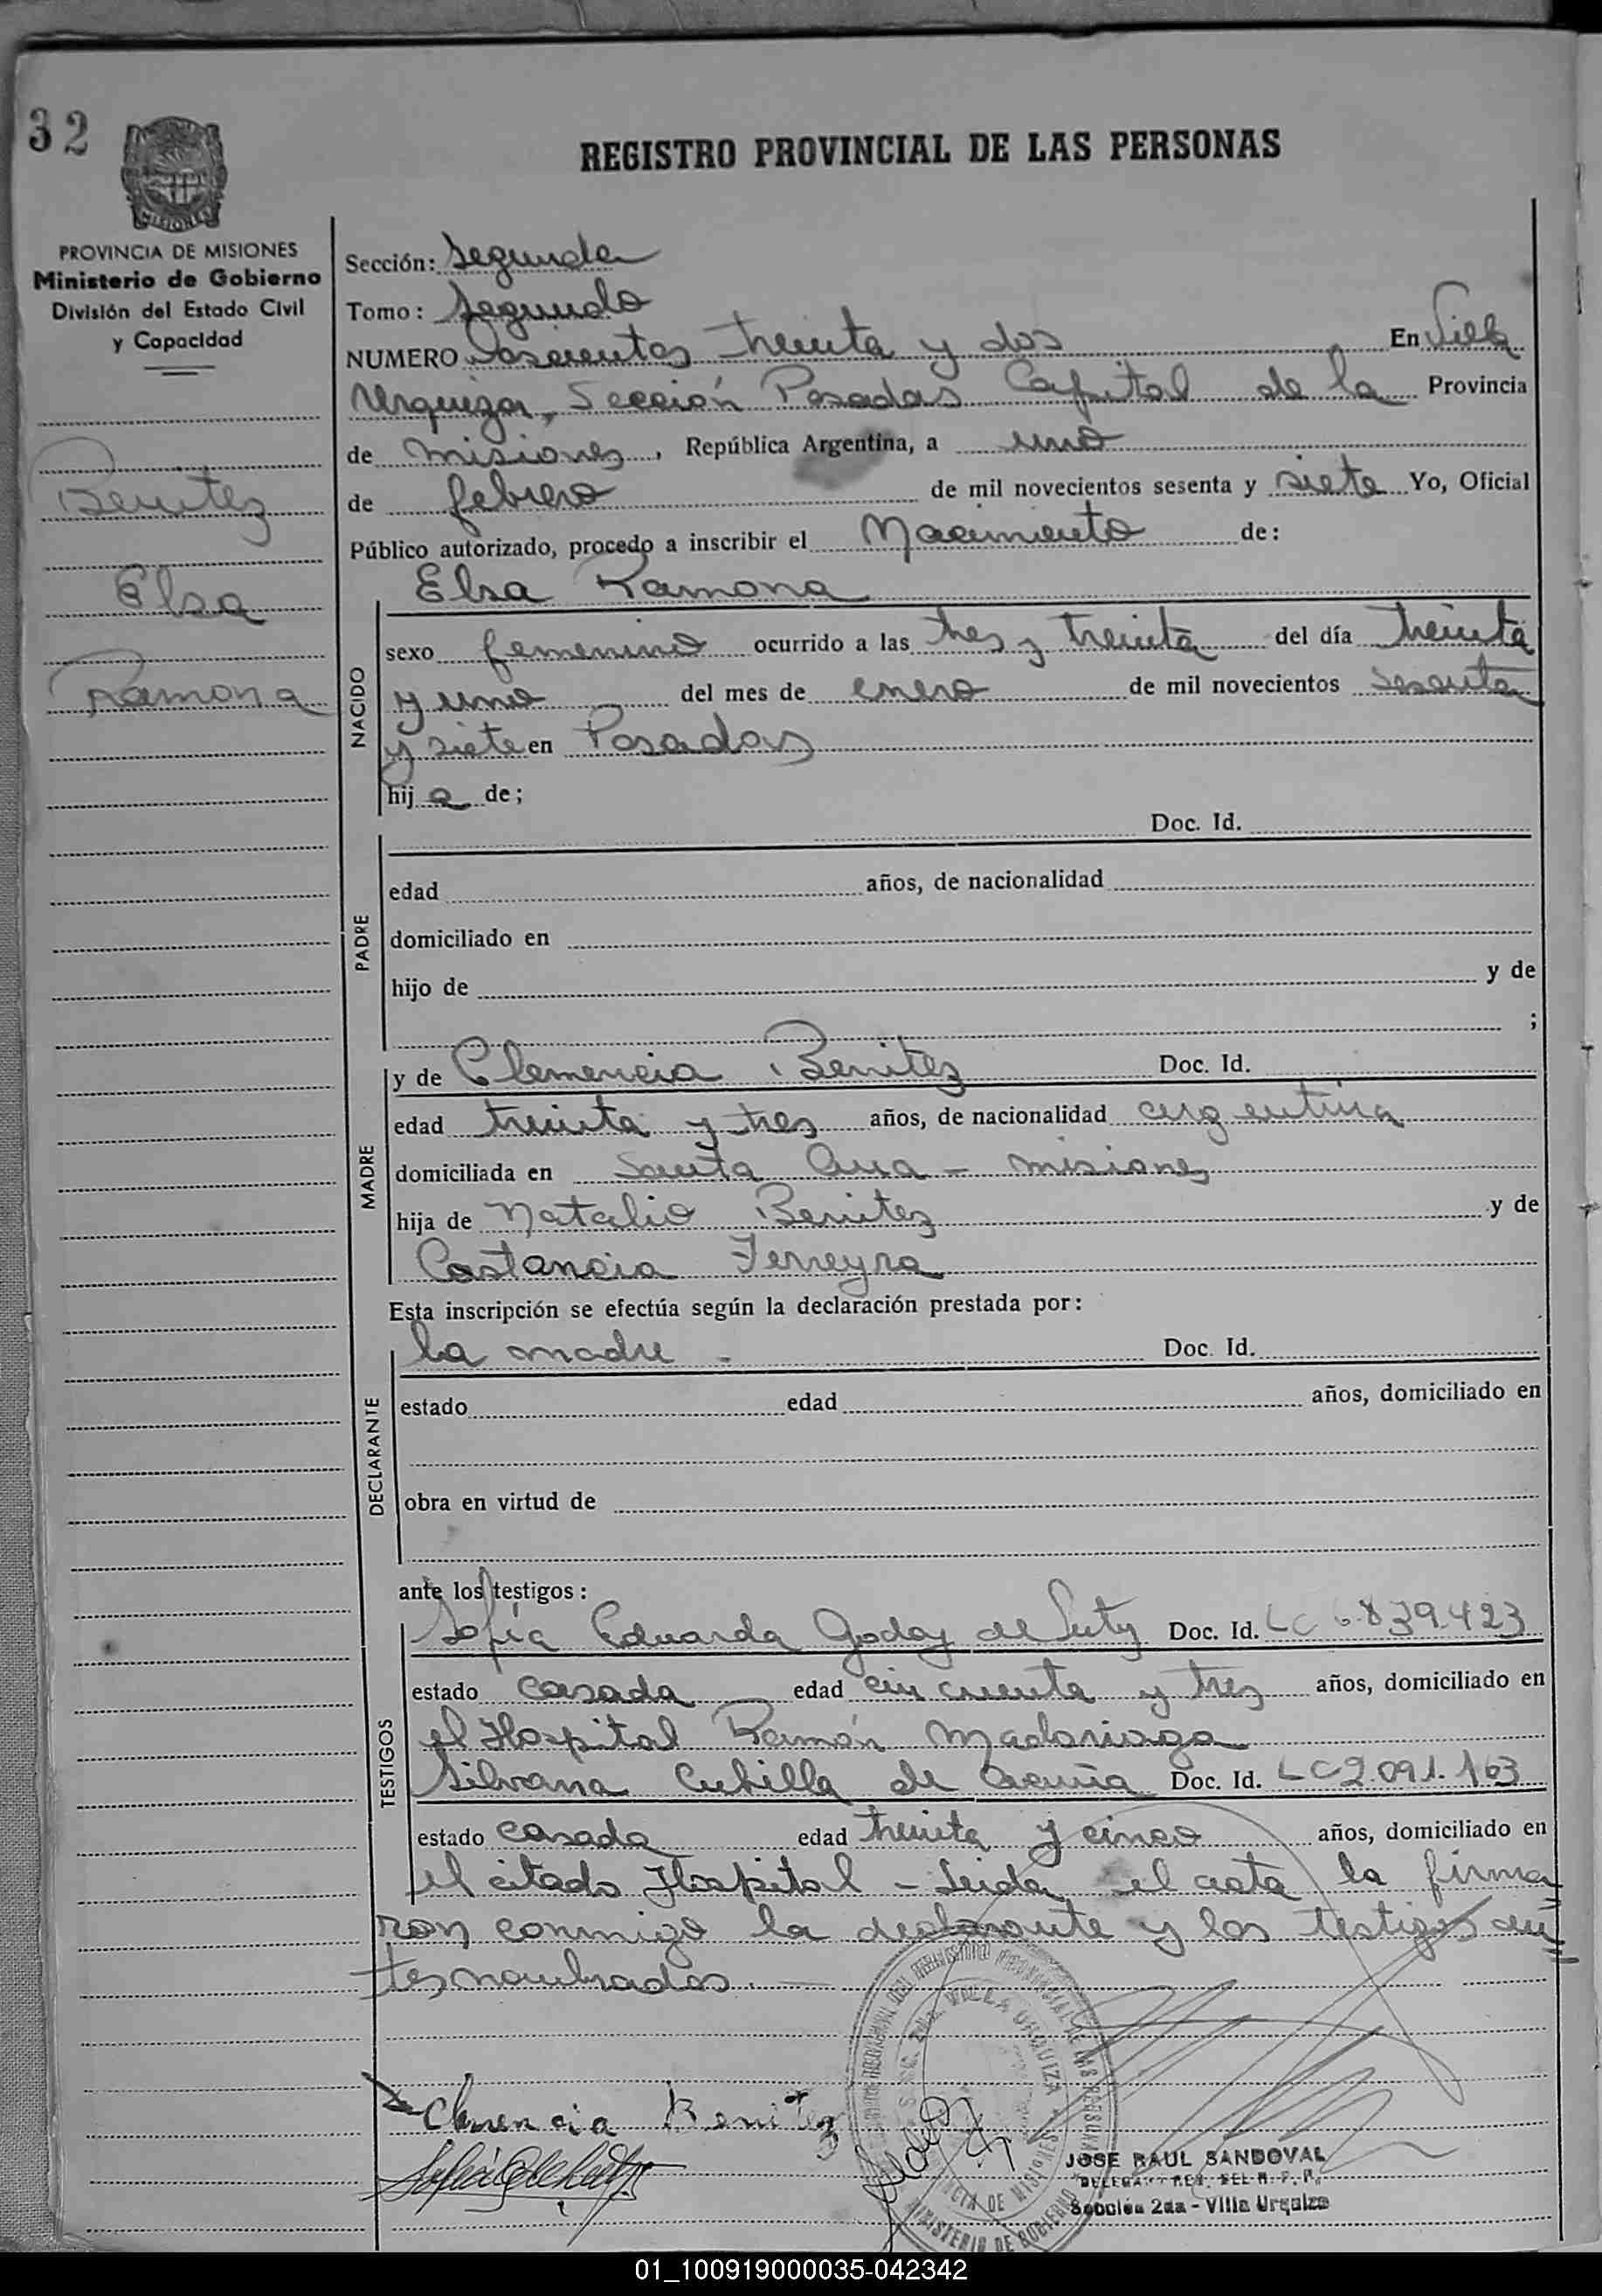 32
REGISTRO PROVINCIAL DE LAS PERSONAS
MISIONES
PROVINCIA DE MISIONES
Ministerio de Gobierno
División del Estado Civil
y Capacidad
Benitez
Elsa
Ramona
Sección: Segunda
Tomo: Segundo
NUMERO Doscientos treinta y dos En Villa
Urquiza, Sección Posadas Capital de la Provincia
de Misiones, República Argentina, a uno
de febrero de mil novecientos sesenta y siete Yo, Oficial
Público autorizado, procedo a inscribir el Nacimiento de:
Elsa Ramona
NACIDO
sexo femenino ocurrido a las tres y treinta del día treinta
y uno del mes de enero de mil novecientos sesenta
y siete en Posadas
hija de;
PADRE
Doc. Id.
edad años, de nacionalidad
domiciliado en
hijo de y de
;
MADRE
y de Clemencia Benitez Doc. Id.
edad treinta y tres años, de nacionalidad argentina
domiciliada en Santa Ana - Misiones
hija de Natalio Benitez y de
Costancia Ferreyra
Esta inscripción se efectúa según la declaración prestada por:
DECLARANTE
la madre - Doc. Id.
estado edad años, domiciliado en
obra en virtud de
ante los testigos:
TESTIGOS
Sofía Eduarda Godoy de Doc. Id. LC 6.839.423
estado casada edad cincuenta y tres años, domiciliado en
el Hospital Ramón Madariaga
Silvana Cubilla de Acuña Doc. Id. LC 2.091.163
estado casada edad treinta y cinco años, domiciliado en
el citado Hospital - Leida el acta la firma=
ron conmigo la declarante y los testigos an=
tesnombrados. —
Clemencia Benitez
VILLA URQUIZA
MINISTERIO DE GOBIERNO
JOSE RAUL SANDOVAL
Sección 2da - Villa Urquiza
01_100919000035-042342